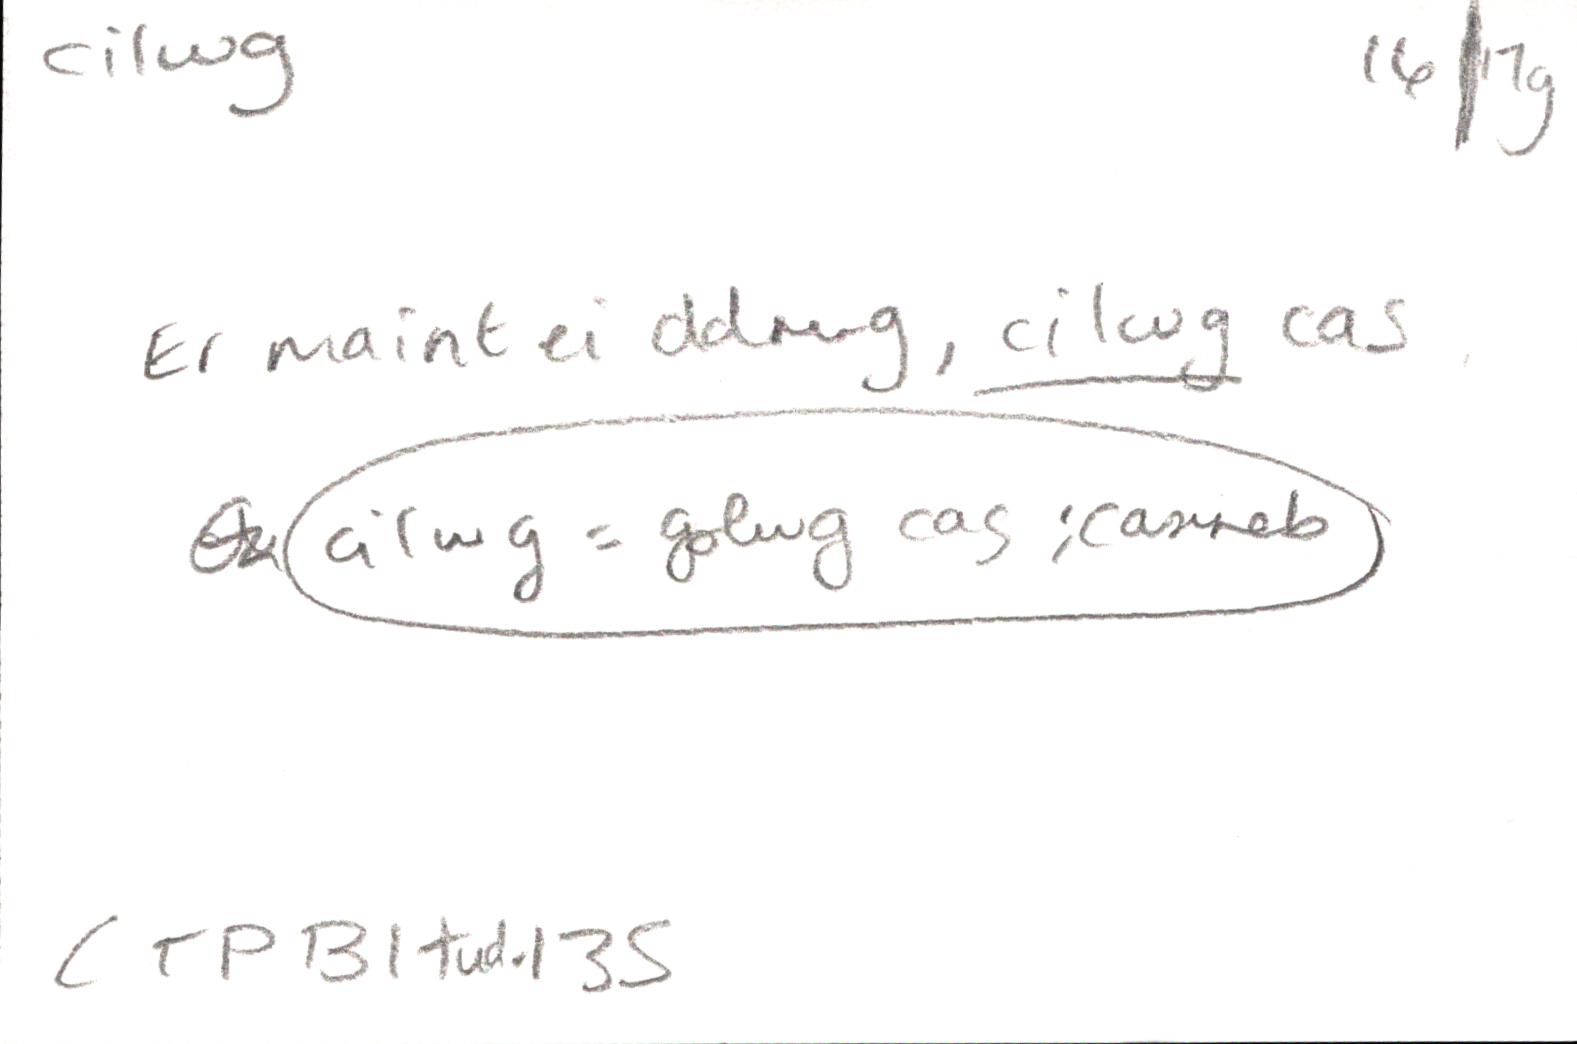 cilwg 16/17g
Er maint ei ddrwg, cilwg cas.
cilwg = golwg cas; casineb
CTPB1 tud.135